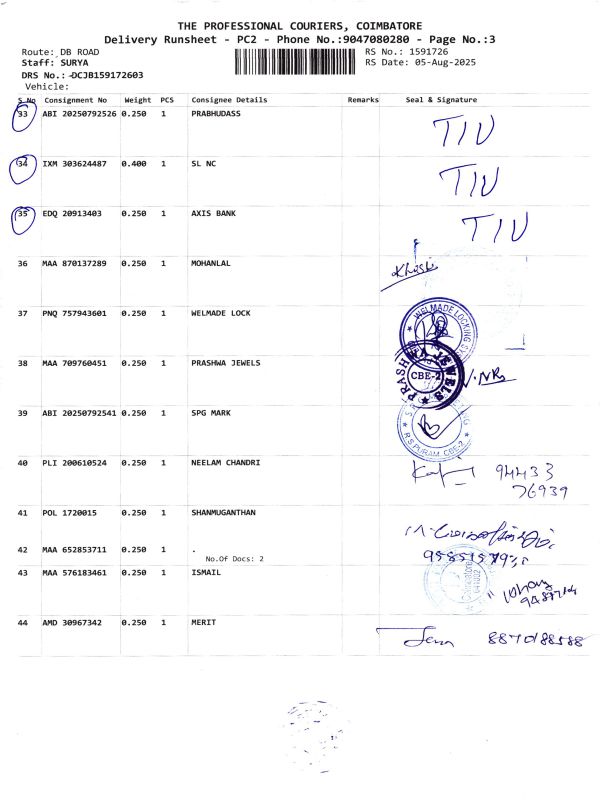 THE PROFESSIONAL COURIERS, COIMBATORE
Delivery Runsheet - PC2 - Phone No.:9047080280 - Page No.:3
Route: DB ROAD
RS No.: 1591726
Staff: SURYA
RS Date: 05-Aug-2025
DRS No.: DCJB159172603
Vehicle:
S No Consignment No Weight PCS Consignee Details Remarks Seal & Signature
33 ABI 20250792526 0.250 1 PRABHUDASS
34 IXM 303624487 0.400 1 SL NC
35 EDQ 20913403 0.250 1 AXIS BANK
36 MAA 870137289 0.250 1 MOHANLAL
37 PNQ 757943601 0.250 1 WELMADE LOCK
WELMADE LOCKING
38 MAA 709760451 0.250 1 PRASHWA JEWELS
PRASHWA JEWELS
CBE-2
39 ABI 20250792541 0.250 1 SPG MARK
R.S PURAM, CBE-2
40 PLI 200610524 0.250 1 NEELAM CHANDRI
94433
76939
41 POL 1720015 0.250 1 SHANMUGANTHAN
42 MAA 652853711 0.250 1 .
No.Of Docs: 2
43 MAA 576183461 0.250 1 ISMAIL
44 AMD 30967342 0.250 1 MERIT
8870188588